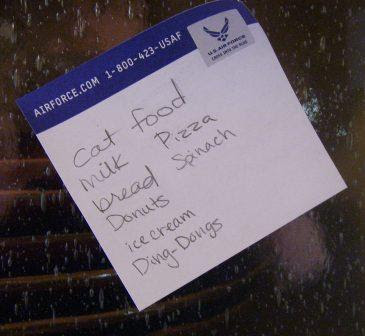 AIRFORCE.COM 1-800-423-USAF
U.S. AIR FORCE
CROSS INTO THE BLUE
cat food
milk Pizza
bread Spinach
Donuts
ice cream
Ding-Dongs